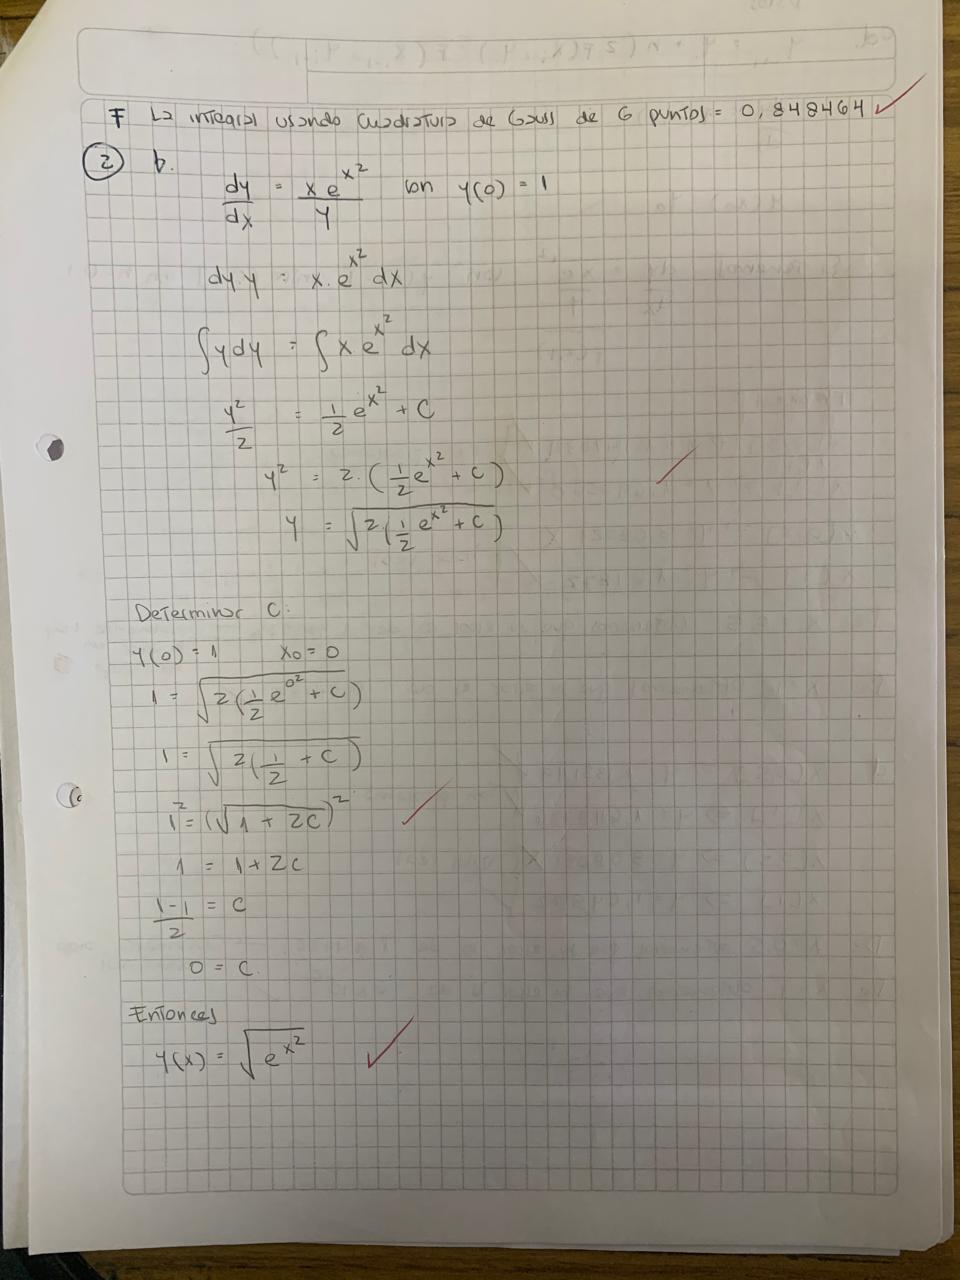 F La integral usando Cuadratura de Gauss de 6 puntos = 0,848464 ✓
2 b. dy/dx = x e^x^2 / y con y(0) = 1
dy.y = x.e^x^2 dx
∫ y dy = ∫ x e^x^2 dx
y^2/2 = 1/2 e^x^2 + C
y^2 = 2.(1/2 e^x^2 + C) ✓
y = √(2(1/2 e^x^2 + C))
Determinar C:
y(0) = 1 x0 = 0
1 = √(2(1/2 e^0^2 + C))
1 = √(2(1/2 + C))
1^2 = (√(1 + 2C))^2 ✓
1 = 1 + 2C
(1-1)/2 = C
0 = C.
Entonces
y(x) = √(e^x^2) ✓